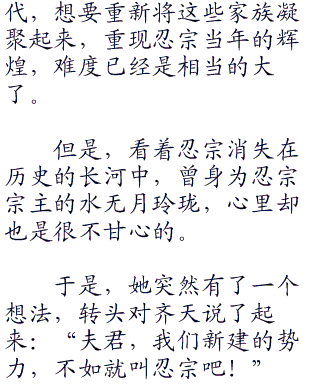 代，想要重新将这些家族凝
聚起来，重现忍宗当年的辉
煌，难度已经是相当的大
了。
但是，看着忍宗消失在
历史的长河中，曾身为忍宗
宗主的水无月玲珑，心里却
也是很不甘心的。
于是，她突然有了一个
想法，转头对齐天说了起
来：“夫君，我们新建的势
力，不如就叫忍宗吧！”